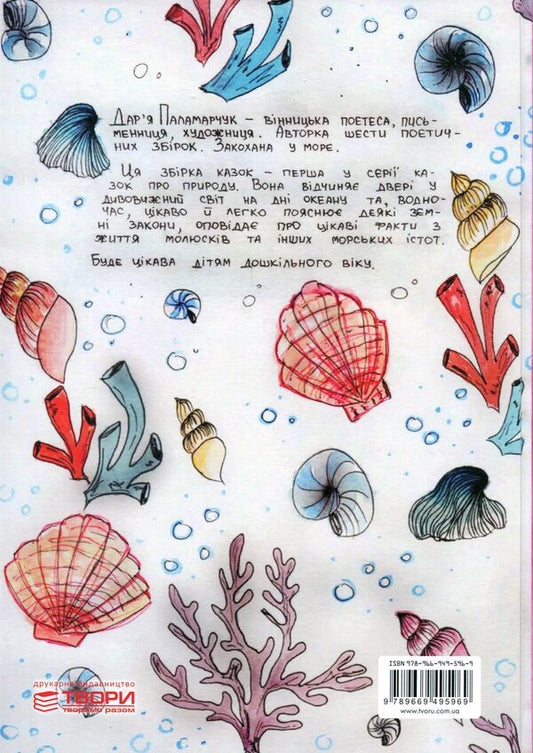 Дар'я Паламарчук – вінницька поетеса, пись-
менниця, художниця. Авторка шести поетич-
них збірок. Закохана у море.
Ця збірка казок – перша у серії ка-
зок про природу. Вона відчиняє двері у
дивовижний світ на дні океану та, водно-
час, цікаво й легко пояснює деякі зем-
ні закони, оповідає про цікаві факти з
життя молюсків та інших морських істот.
Буде цікава дітям дошкільного віку.
друкарня-видавництво
ТВОРИ
творимо разом
ISBN 978-966-949-596-9
9 789669 495969
www.tvoru.com.ua